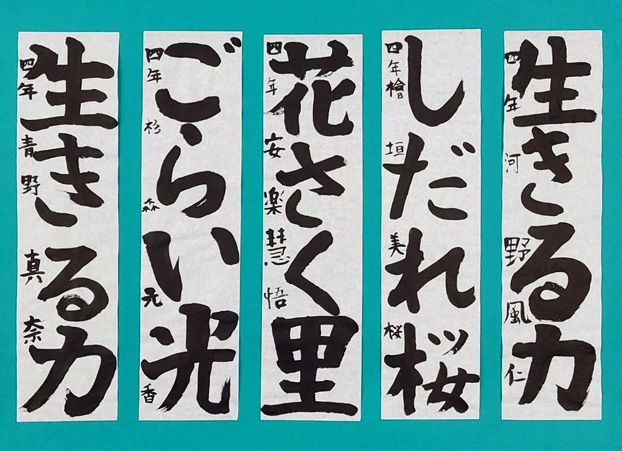 生きる力
四年 河野風仁
しだれ桜
四年 檜垣美桜
花さく里
四年 安楽慧悟
ごらい光
四年 杉森元香
生きる力
四年 青野真奈